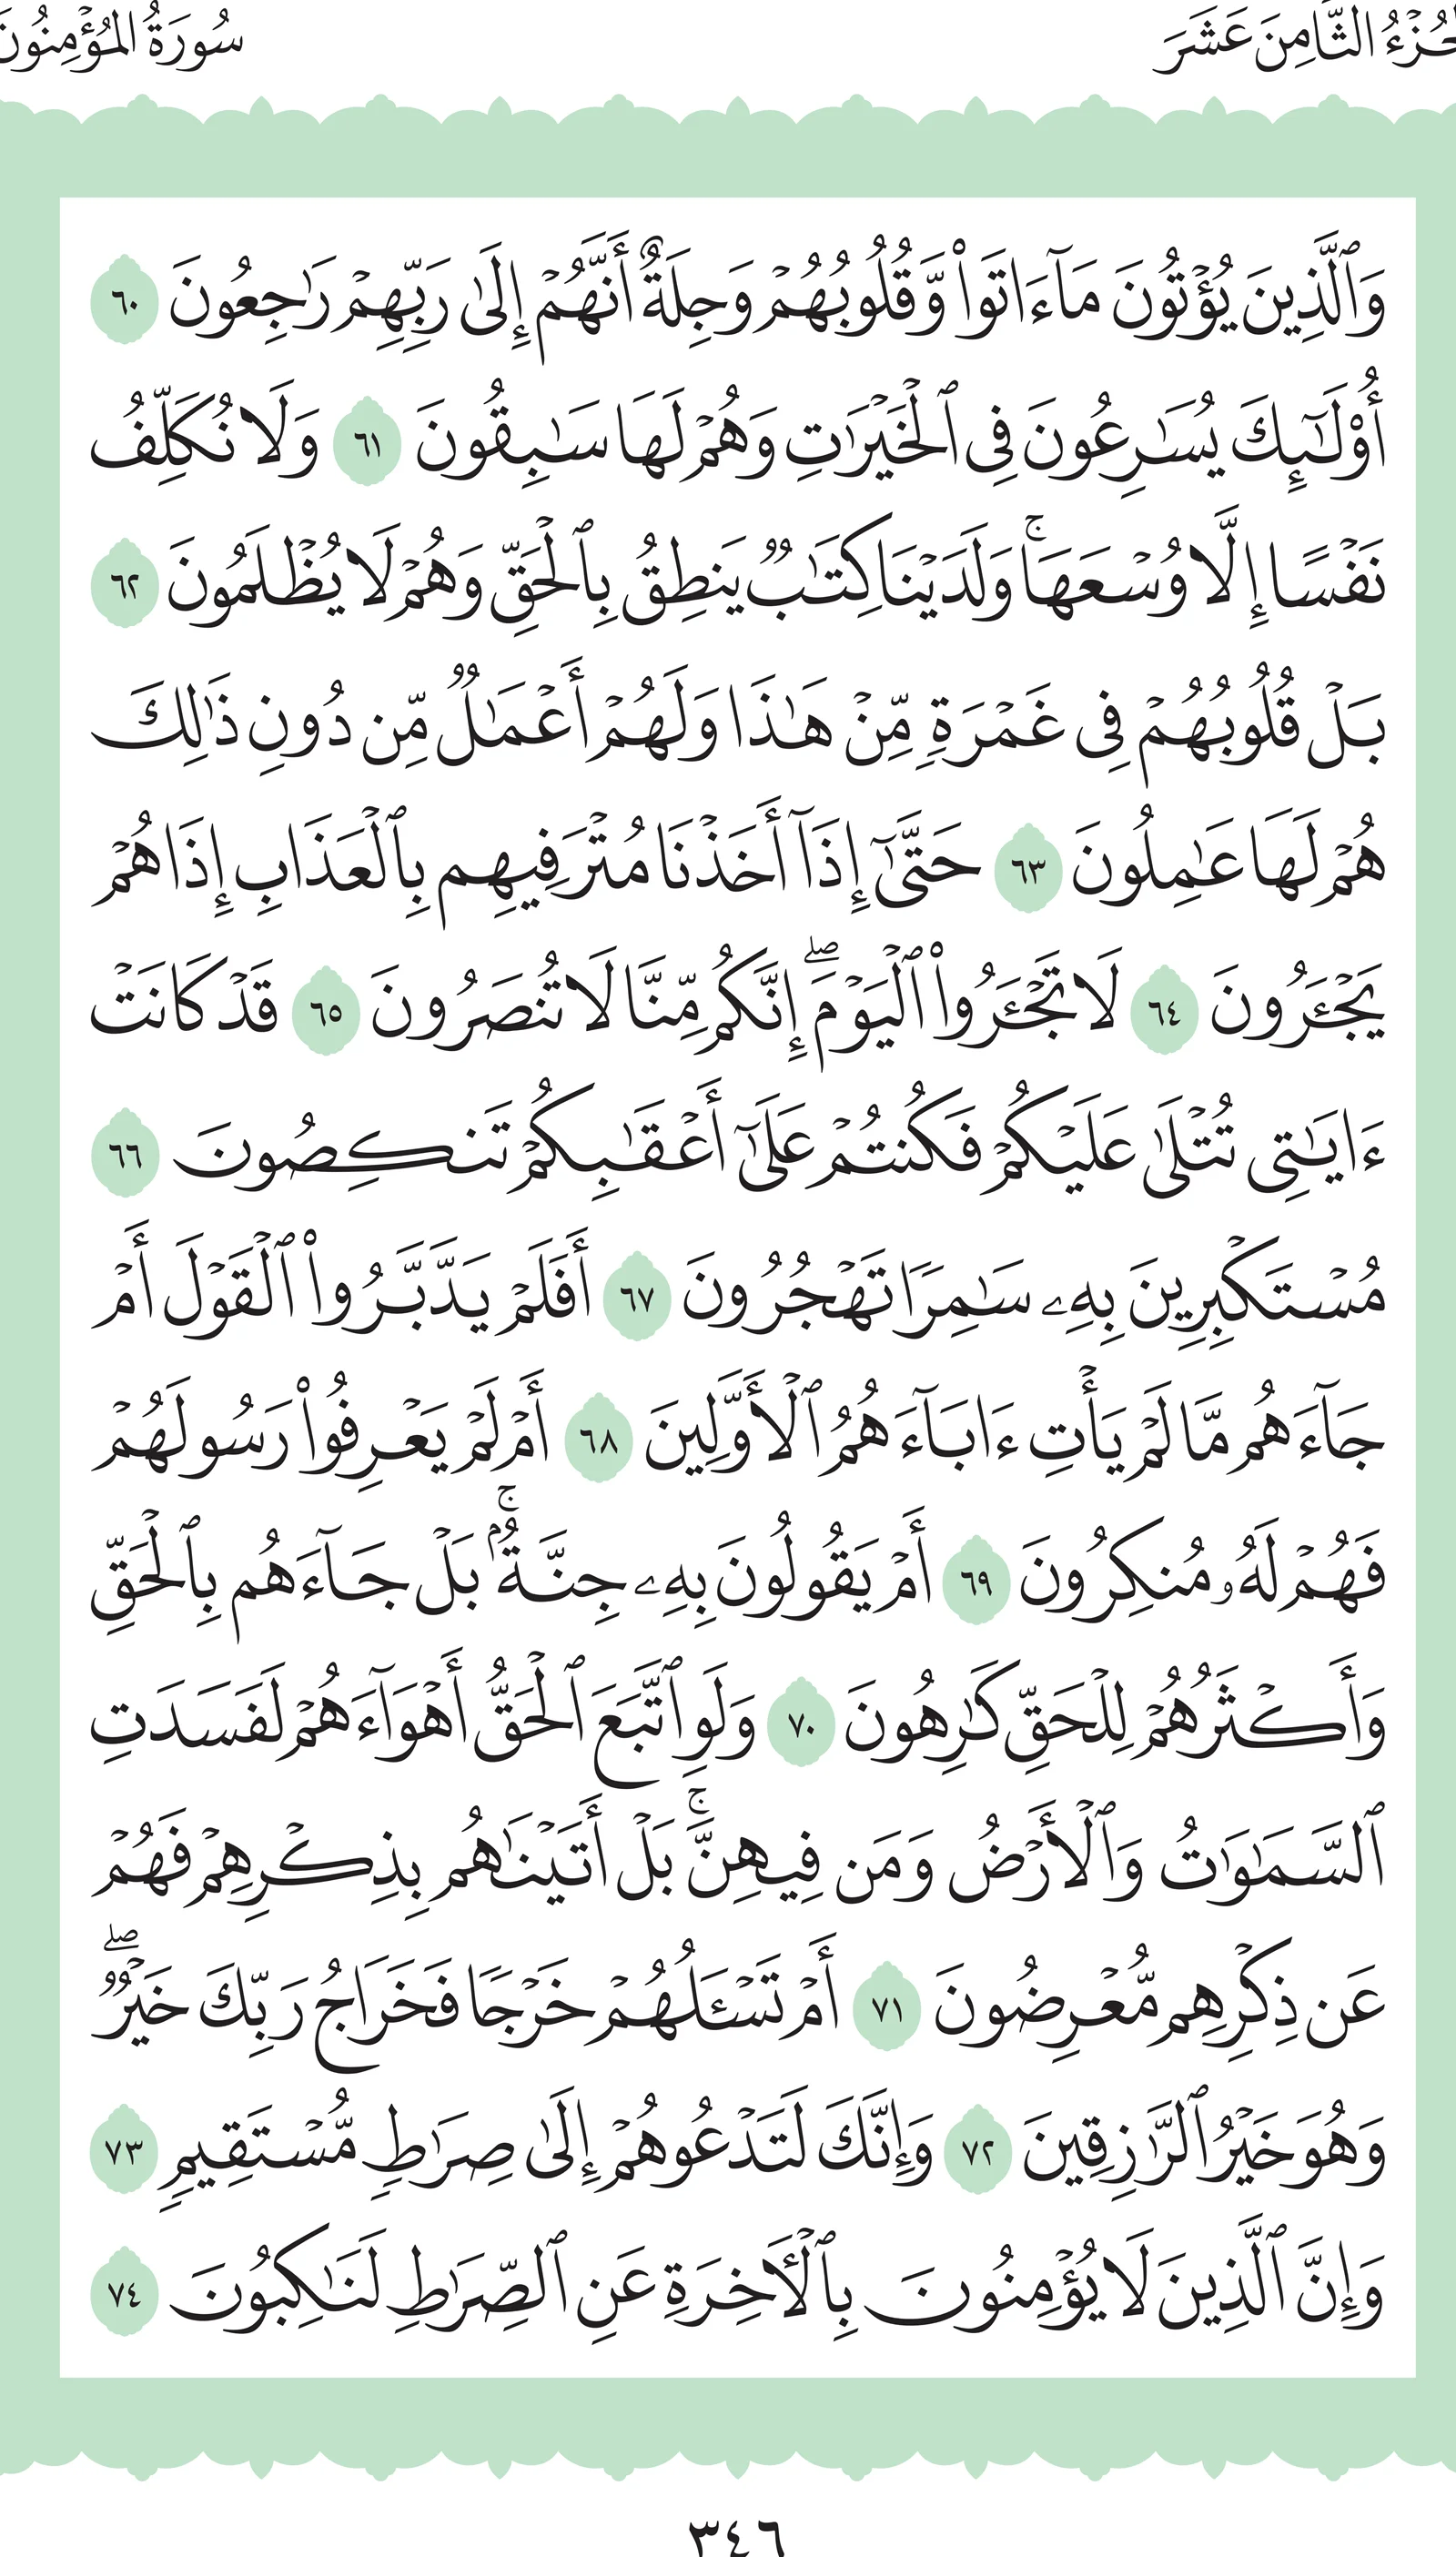 الجُزْءُ الثَّامِنَ عَشَرَ
سُورَةُ المُؤْمِنُونَ
وَٱلَّذِينَ يُؤْتُونَ مَآ ءَاتَوا۟ وَّقُلُوبُهُمْ وَجِلَةٌ أَنَّهُمْ إِلَىٰ رَبِّهِمْ رَٰجِعُونَ ٦٠
أُو۟لَـٰٓئِكَ يُسَـٰرِعُونَ فِى ٱلْخَيْرَٰتِ وَهُمْ لَهَا سَـٰبِقُونَ ٦١ وَلَا نُكَلِّفُ
نَفْسًا إِلَّا وُسْعَهَا ۚ وَلَدَيْنَا كِتَـٰبٌ يَنطِقُ بِٱلْحَقِّ وَهُمْ لَا يُظْلَمُونَ ٦٢
بَلْ قُلُوبُهُمْ فِى غَمْرَةٍ مِّنْ هَـٰذَا وَلَهُمْ أَعْمَـٰلٌ مِّن دُونِ ذَٰلِكَ
هُمْ لَهَا عَـٰمِلُونَ ٦٣ حَتَّىٰٓ إِذَآ أَخَذْنَا مُتْرَفِيهِم بِٱلْعَذَابِ إِذَا هُمْ
يَجْـَٔرُونَ ٦٤ لَا تَجْـَٔرُوا۟ ٱلْيَوْمَ ۖ إِنَّكُم مِّنَّا لَا تُنصَرُونَ ٦٥ قَدْ كَانَتْ
ءَايَـٰتِى تُتْلَىٰ عَلَيْكُمْ فَكُنتُمْ عَلَىٰٓ أَعْقَـٰبِكُمْ تَنكِصُونَ ٦٦
مُسْتَكْبِرِينَ بِهِۦ سَـٰمِرًا تَهْجُرُونَ ٦٧ أَفَلَمْ يَدَّبَّرُوا۟ ٱلْقَوْلَ أَمْ
جَآءَهُم مَّا لَمْ يَأْتِ ءَابَآءَهُمُ ٱلْأَوَّلِينَ ٦٨ أَمْ لَمْ يَعْرِفُوا۟ رَسُولَهُمْ
فَهُمْ لَهُۥ مُنكِرُونَ ٦٩ أَمْ يَقُولُونَ بِهِۦ جِنَّةٌۢ ۚ بَلْ جَآءَهُم بِٱلْحَقِّ
وَأَكْثَرُهُمْ لِلْحَقِّ كَـٰرِهُونَ ٧٠ وَلَوِ ٱتَّبَعَ ٱلْحَقُّ أَهْوَآءَهُمْ لَفَسَدَتِ
ٱلسَّمَـٰوَٰتُ وَٱلْأَرْضُ وَمَن فِيهِنَّ ۚ بَلْ أَتَيْنَـٰهُم بِذِكْرِهِمْ فَهُمْ
عَن ذِكْرِهِم مُّعْرِضُونَ ٧١ أَمْ تَسْـَٔلُهُمْ خَرْجًا فَخَرَاجُ رَبِّكَ خَيْرٌ ۖ
وَهُوَ خَيْرُ ٱلرَّٰزِقِينَ ٧٢ وَإِنَّكَ لَتَدْعُوهُمْ إِلَىٰ صِرَٰطٍ مُّسْتَقِيمٍ ٧٣
وَإِنَّ ٱلَّذِينَ لَا يُؤْمِنُونَ بِٱلْـَٔاخِرَةِ عَنِ ٱلصِّرَٰطِ لَنَـٰكِبُونَ ٧٤
٣٤٦